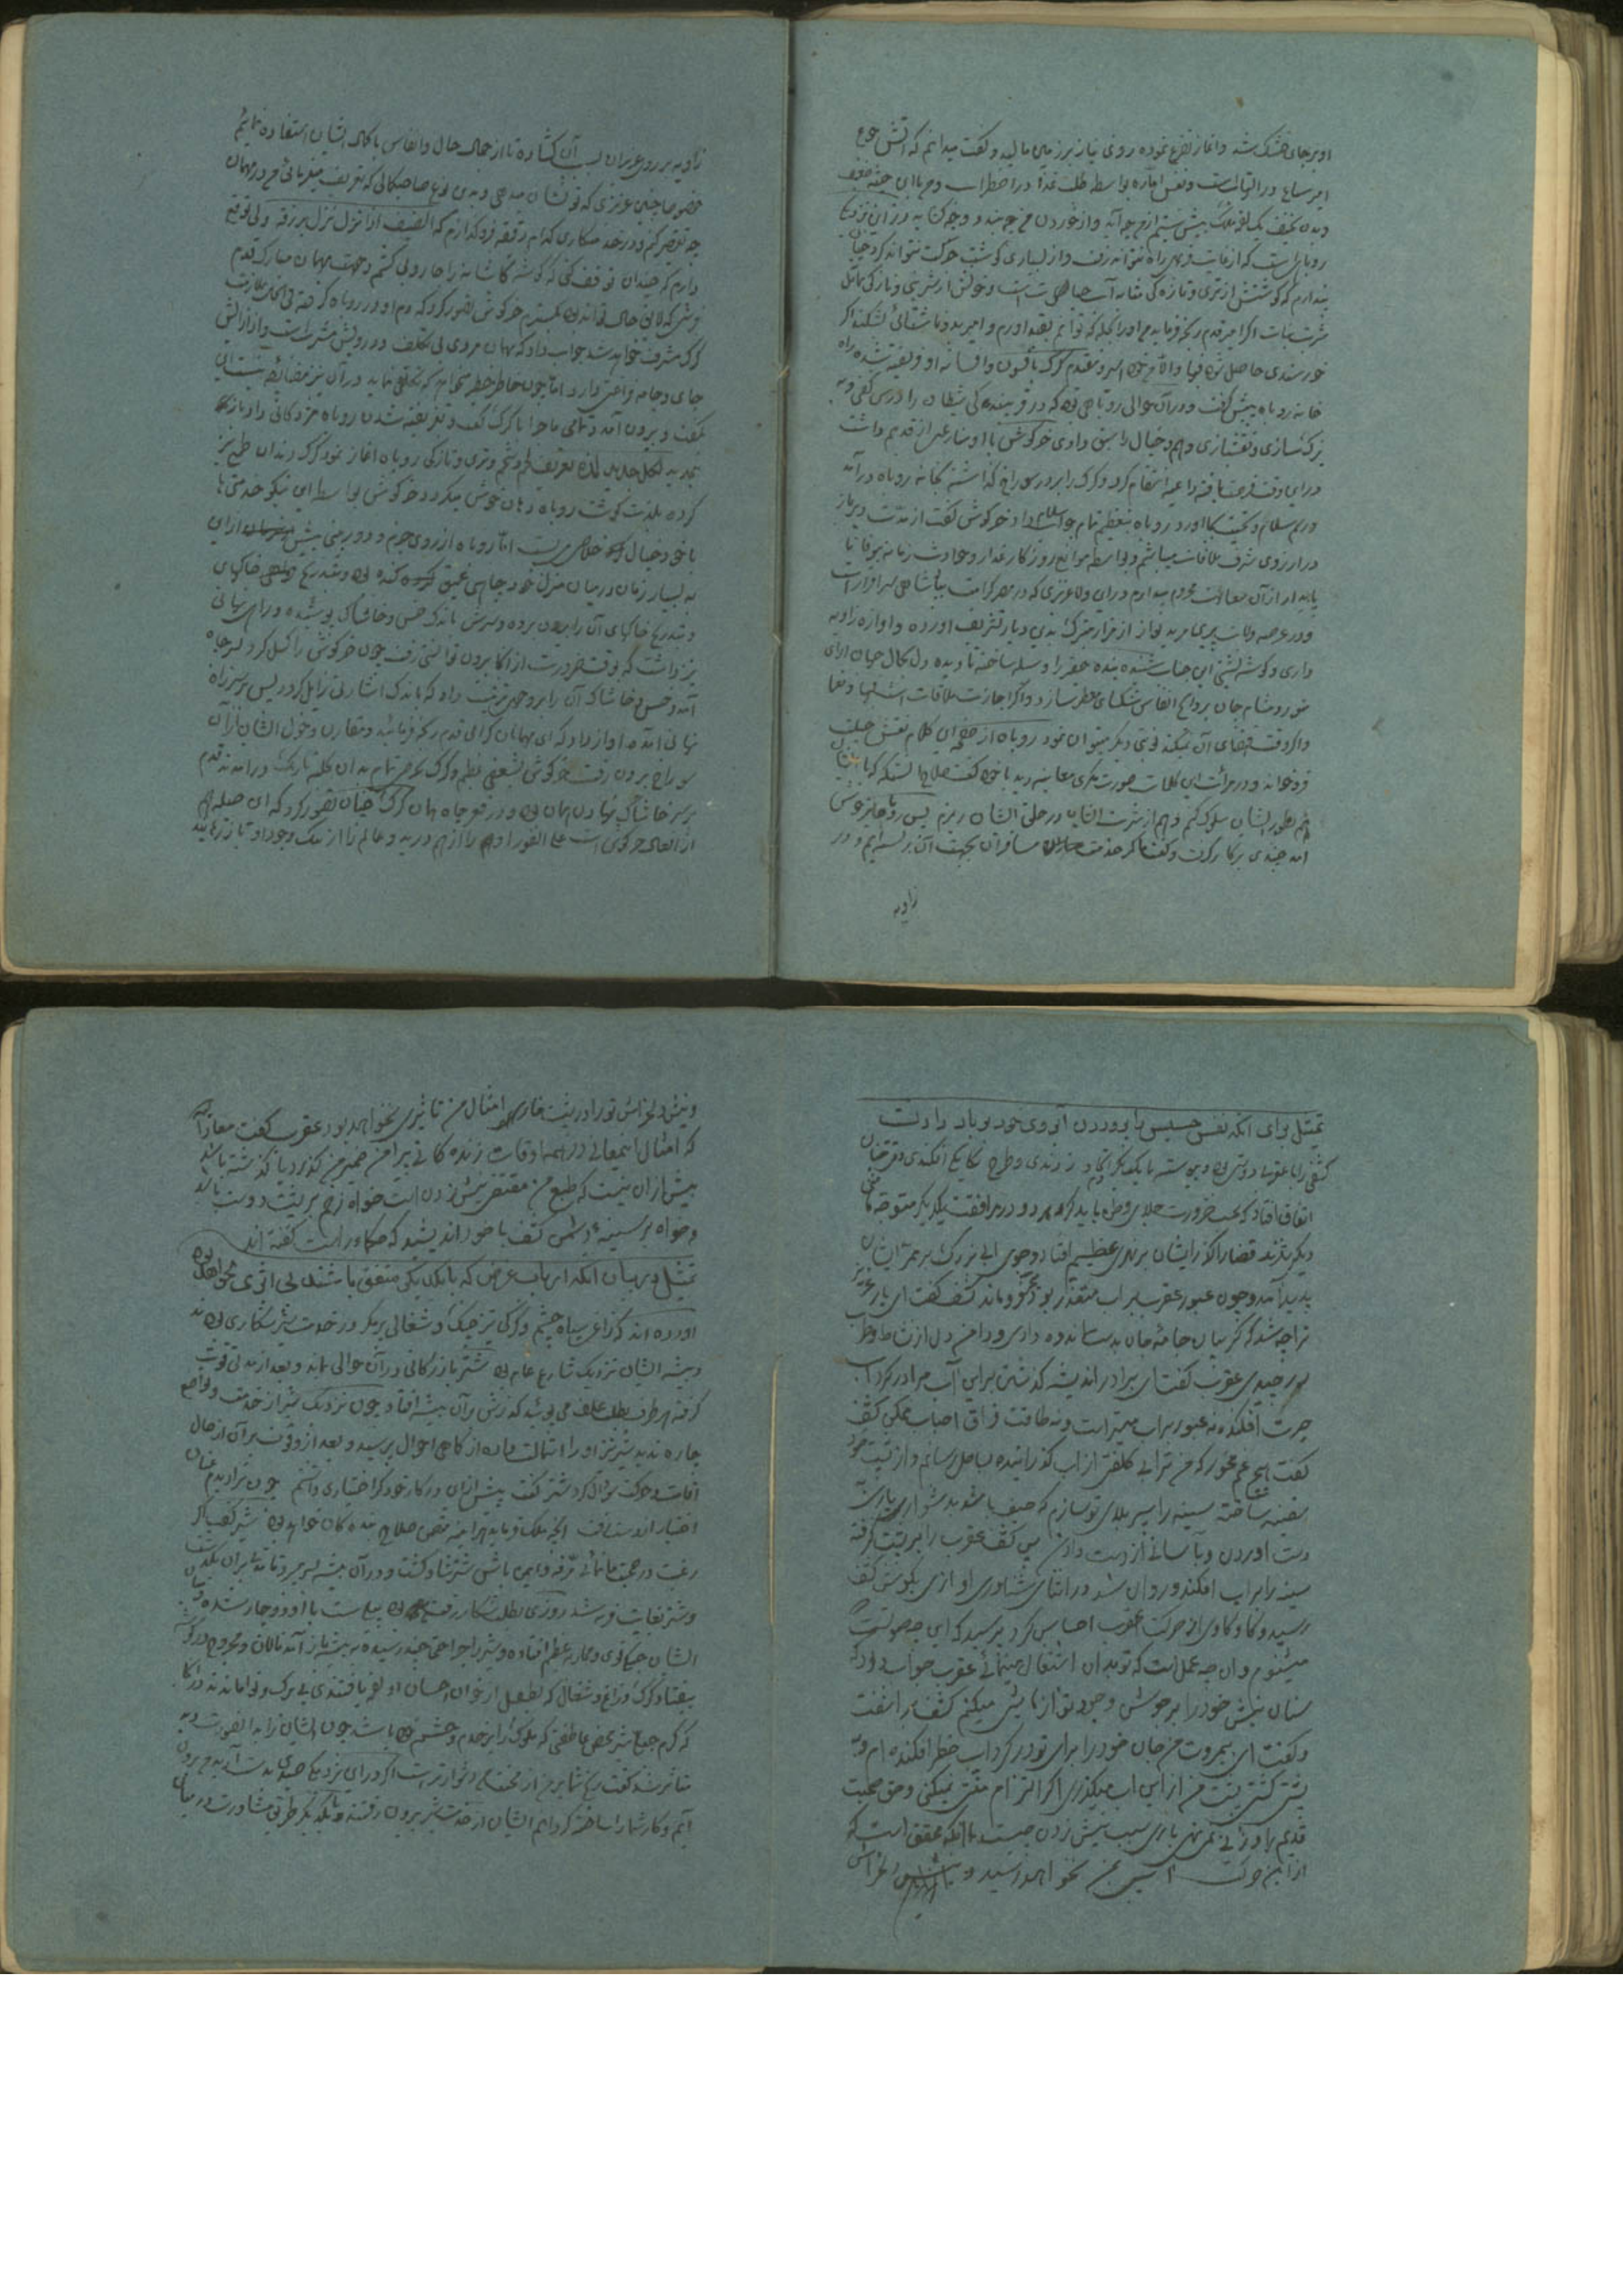 او بر جای خشک شد و آغاز تضرع نموده روی نیاز بر زمین مالید و گفت میدانم که آتش جوع
امیر سباع در التهابست و نفس اماره بواسطه طلب غذا در اضطراب و من با این جثه ضعیف
و بدن نحیف یک لقمه ملک بیش نیستم از من چه آید و از خوردن من چه بندد و چه گشاید در آن نزدیکی
روباهیست که از غایت فربهی راه نتواند رفت و از بسیاری گوشت حرکت نتواند کرد چنان
پندارم که گوشتش از تری و تازگی مشابه آب حیاتست و خونش از شیرینی و نازکی مماثل
شربت نبات اگر امیر قدم رنجه فرماید من او را بحیله که توانم بقید آورم و امیر بدو ناشتائی بشکند اگر
خورسندی حاصل شود فبها والا من خود اسیر و مقیدم گرگ بافسون و افسانه او فریفته شده راه
خانه روباه پیش گفت و در آن حوالی روباهی بود که در فریبندگی شیطان را درس گفتی و به
نیرنگ‌سازی و نقشبازی وهم و خیال را سبق دادی خرگوش با او منازعتی از قدیم داشت
در این وقت فرصت یافته داعیه انتقام کرد و گرگ را بر در سوراخ گذاشته بخانه روباه درآمد
و رسم سلام و تحیت بجا آورد روباه بتعظیم تمام جواب سلام داد خرگوش گفت از مدت دیر باز
در آرزوی شرف ملاقات میباشم و بواسطه موانع روزگار غدار و حوادث زمانه بیوفا
پایدار از آن سعادت محروم میماندم در این ولا عزیزی که در مصر کرامت پادشاهی سرافراز است
و در عرصه ولایت پیری مرید نواز از مزار متبرک بدین دیار تشریف آورده و آوازه زاویه
داری و گوشه نشینی این جناب شنیده بنده حقیر را وسیله ساخته تا دیده دل بجمال جهان آرای
منور و مشام جان بروایح انفاس مشکسای معطر سازد و اگر اجازت ملاقات است فبها و نعما
و اگر وقت اقتضای آن نمیکند نوبتی دیگر میتوان نمود روباه از صفحه این کلام نقش حیلت
فرو خواند و در مرآت این کلمات صورت مکری معاینه دید با خود گفت صلاح آنستکه که با ایشان
هم بطور ایشان سلوک کنم و هم از شربت ایشان در حلق ایشان ریزم پس روباه خرخوش
آمد چندی بر کار کرد و گفت ما کمر خدمت مسافران بجهت آن بر بسته‌ایم و در
زاویه
زاویه بر روی عزیزان بسبب آن گشاده تا از جمال حال و انفاس با کمال ایشان استفاده نمائیم
خصوصا چنین عزیزی که تو نشان میدهی و بدین نوع صاحبکمالی که تعریف میفرمائی من در مهمان
چه تقصیر کنم و در خدمتکاری کدام دقیقه فرو گذارم که الضیف اذا نزل نزل برزقه ولی توقع
دارم که چندان توقف کنی که گوشه کاشانه را جاروبی کشم و جهت مهمان مبارک قدم
فرشی که لایق حال تواند بود بگسترم خرگوش تصور کرد که دم او در روباه گرفته فی الحال بملازمت
گرگ مشرف خواهد شد جواب داد که مهمان مردی بی تکلف و درویش مشربست و از آرایش
جای و جامه فراغتی دارد اما چون خاطر خطیر میخواهد که تکلفی نماید در آن نیز مضایقه نیست این
بگفت و بیرون آمد و تمامی ماجرا با گرگ گفت و بفریفته شدن روباه مژدگانی داد و باز
کرده بلذت گوشت روباه دهان خوش میکرد و خرگوش بواسطه این نیکو خدمتیها
با خود خیال خلاص می بست اما روباه از روی حزم و دوربینی پیش از این
به بسیار زمان در میان منزل خود چاهی عمیق کنده بود و بتدریج خاکهای
و بتدریج خاکهای آن را بیرون برده و سرش باندک خس و خاشاک پوشیده و راهی نهانی
نیز داشت که بوقت ضرورت از آنجا بیرون توانستی رفت چون خرگوش را گسیل کرد بسر چاه
آمد و خس و خاشاک آن را بر وجهی ترتیب داد که باندک اشارتی زایل گردد پس بر سر راه
نهانی آمده آواز داد که ای مهمانان گرامی قدم رنجه فرمائید و مقارن دخول ایشان از آن
سوراخ بیرون رفت خرگوش بشعفی عظیم و گرگ بحرص تمام بدان کلبه تاریک درآمدند قدم
بر سر خاشاک نهادن همان بود و در قعر چاه همان گرگ چنان تصور کرد که این حیله هم
از افعال خرگوش است علی الفور او را از هم درید و عالم را از ننگ وجود او باز رهانید
تمثیل برای آنکه نفس خسیس را پروردن آبروی خود بر باد دادنست
کشفی را با عقربی دوستی بود و پیوسته با یکدیگر دم اتحاد زدندی و طرح یگانگی افکندندی وقتی چنان
اتفاق افتاد که بحسب ضرورت جلای وطن بایست کرد هر دو در مرافقت یکدیگر متوجه مأمنی
دیگر شدند قضا را گذر ایشان بر نهری عظیم افتاد و جوی آبی بزرگ بر ممر ایشان
پدید آمد و چون عبور عقرب بر آب متعذر بود متحیر فرو ماند کشف گفت ای یار عزیز
ترا چه شد که گریبان جامه جان بدست اندوه دادی و دامن دل از نشاط و طرب
در چیدی عقرب گفت ای برادر اندیشه گذشتن بر این آب مرا در گرداب
حیرت افکنده نه عبور بر آب میسر است و نه طاقت فراق احباب ممکن کشف
گفت هیچ غم مخور که من ترا بی کلفتی از آب گذرانیده بساحل رسانم و از پشت خود
سفینه ساخته سینه را سپر بلای تو سازم که حیف باشد بدشواری یاری
بدست آوردن و بآسانی از دست دادن پس کشف عقرب را بر پشت گرفته
سینه را بر آب افکند و روان شد در اثنای شناوری آوازی بگوش کشف
رسید و کاو کاوی از حرکت عقرب احساس کرد پرسید که این چه صوتست
میشنوم و آن چه عمل است که تو بدان اشتغال مینمائی عقرب جواب داد که
سنان نیش خود را بر جوشن وجود تو آزمایش میکنم کشف برآشفت
و گفت ای بیمروت من جان خود را برای تو در گرداب خطر افکنده‌ام و به
پشتی کشتی پشت من از این آب میگذری اگر التزام منتی نمیکنی و حق صحبت
قدیم را وزنی نمی نهی باری سبب نیش زدن چیست با آنکه محقق است که
از این حرکت آسیبی بمن نخواهد رسید و نیش دلخراش
و نیش دلخراش تو را در پشت خارای امثال من تاثیری نخواهد بود عقرب گفت معاذ الله
که امثال این معانی در همه اوقات زندگانی پیرامن ضمیر من گذرد یا گذشته باشد
بیش از آن نیست که طبع من مقتضی نیش زدن است خواه زخم بر پشت دوست باشد
و خواه بر سینه دشمن کشف با خود اندیشید که حکما راست گفته‌اند
تمثیل در بیان آنکه ارباب غرض که با یکدیگر متفق باشند بی اثری نخواهد بود
آورده‌اند که زاغی سیاه چشم و گرگی تیزچنگ و شغالی پر مکر در خدمت شیر شکاری بودند
و بیشه ایشان نزدیک شارع عام بود شتر بازرگانی در آن حوالی بماند و بعد از مدتی قوت
گرفته بهر طرف بطلب علف می پوئید گذرش بر آن بیشه افتاد چون نزدیک شیر از خدمت و تواضع
چاره ندید شیر نیز او را استمالت داده از کماهی احوال پرسید و بعد از وقوف بر آن از حال
اقامت و حرکت سؤال کرد شتر گفت پیش از این در کار خود گر اختیاری داشتم چون ترا بدیدم عنان
اختیار از دست رفت آنچه ملک فرماید هرآینه متضمن صلاح بنده‌گان خواهد بود شیر گفت اگر
رغبت در صحبت ما نمائی مرفه و ایمن باش شتر شاد گشت و در آن بیشه بسر میبرد تا مدتی بر آن بگذشت
و شتر بغایت فربه شد روزی شیر بطلب شکار رفته بود پیلی مست با او دوچار شده میان
ایشان جنگ قوی و محاربه عظیم افتاده و شیر را جراحتی چند رسیده به بیشه باز آمد نالان و مجروح در گوشه
بیفتاد گرگ و زاغ و شغال که بطفیل از خوان احسان او لقمه یافتندی بی برگ و نوا ماندند از آنجا
که کرم جبلی شیر محض عاطفتی که ملوک را بر خدم و حشم خود باشد چون ایشان را بد آنصورت دید
متاثر شد گفت رنج شما بر من از محنت من دشوارتر است اگر در این نزدیکی صیدی بدست آید من بیرون
آیم و کار شما را ساخته گردانم ایشان از خدمت شیر بیرون رفته و با یکدیگر طرح مشاورت در میان